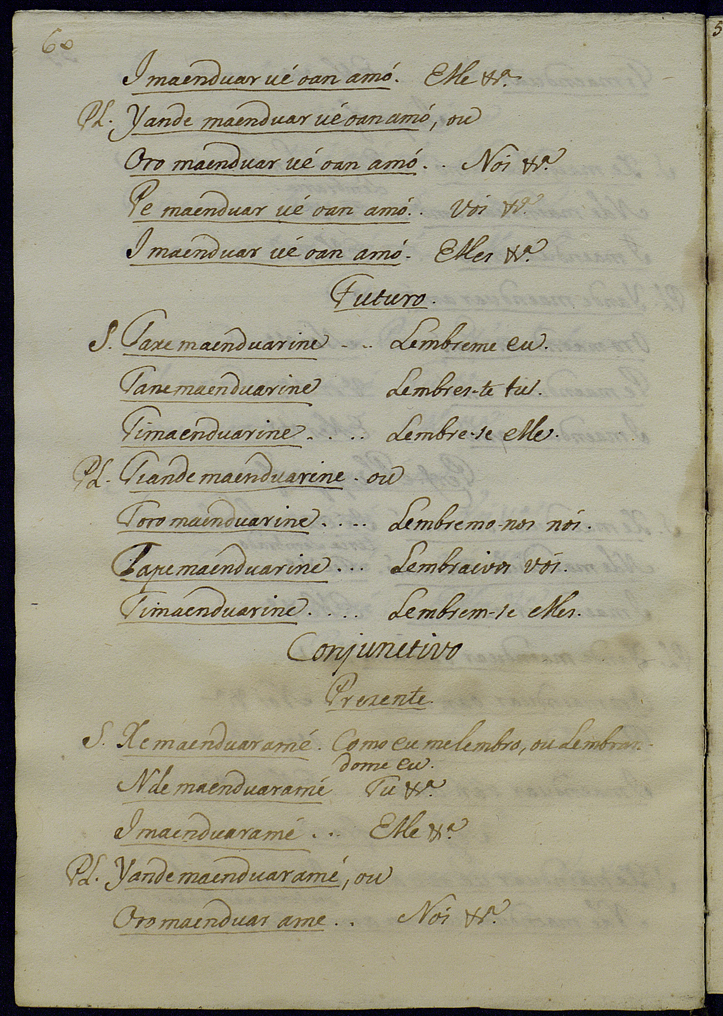 60
Imaenduar ué oan amó. Elle &ª.
Pl. Yande maenduar ué oan amó, ou
Oro maenduar ué oan amó. . Nós &ª.
Pe maenduar ué oan amó. . Vós &ª.
Imaenduar ué oan amó. Elles &ª.
Futuro.
S. Taxemaenduarine . . . Lembreme eu.
Tanemaenduarine Lembres-te tu.
Timaenduarine . . . . Lembre-se elle.
Pl. Tiandemaenduarine . ou
Toromaenduarine . . . . Lembremo-nos nós.
Tapemaenduarine . . . Lembraivos vós.
Timaenduarine . . . . Lembrem-se elles.
Conjunctivo
Prezente.
S. Xemaenduaramé. Como eu me lembro, ou Lembran-
dome eu.
Ndemaenduaramé Tu &ª.
Imaenduaramé . . . Elle &ª.
Pl. Yandemaenduaramé, ou
Oromaenduar ame . . Nós &ª.
5